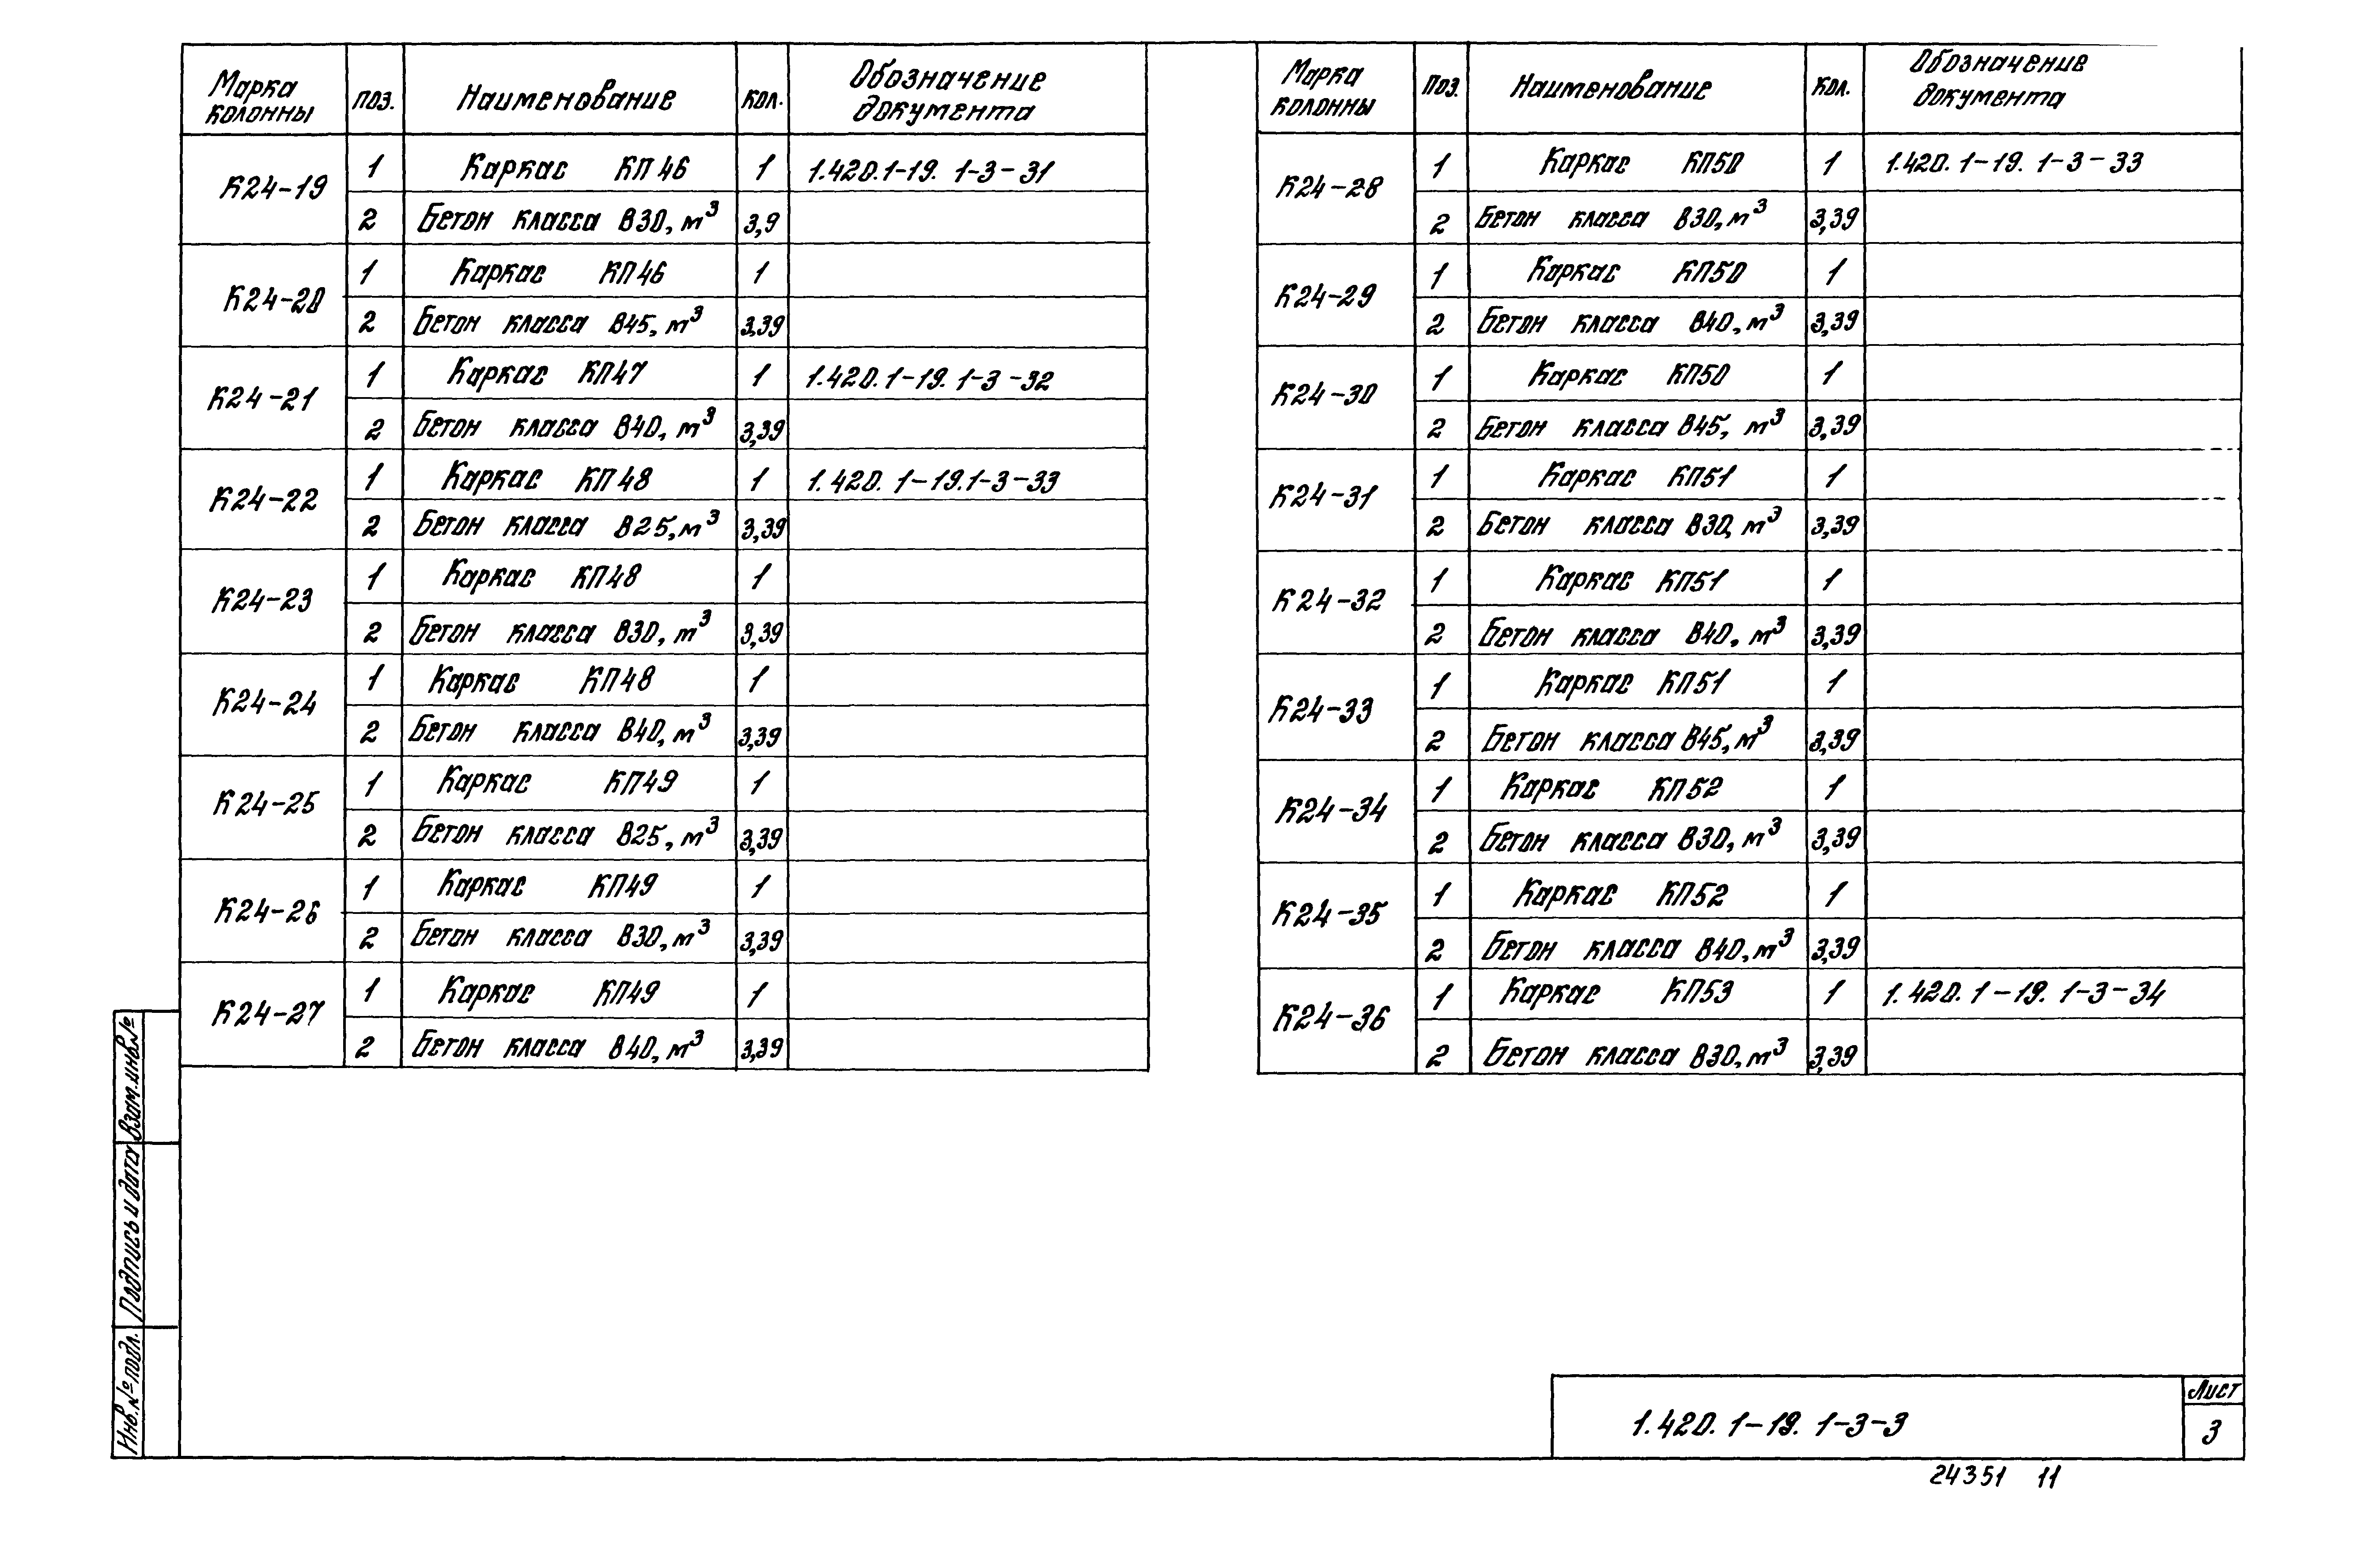 Марка колонны | поз. | Наименование | кол. | Обозначение документа
К24-19 | 1 | Каркас КП46 | 1 | 1.420.1-19. 1-3-31
2 | Бетон класса В30, м³ | 3,9
К24-20 | 1 | Каркас КП46 | 1
2 | Бетон класса В45, м³ | 3,39
К24-21 | 1 | Каркас КП47 | 1 | 1.420.1-19. 1-3-32
2 | Бетон класса В40, м³ | 3,39
К24-22 | 1 | Каркас КП48 | 1 | 1.420.1-19.1-3-33
2 | Бетон класса В25, м³ | 3,39
К24-23 | 1 | Каркас КП48 | 1
2 | Бетон класса В30, м³ | 3,39
К24-24 | 1 | Каркас КП48 | 1
2 | Бетон класса В40, м³ | 3,39
К24-25 | 1 | Каркас КП49 | 1
2 | Бетон класса В25, м³ | 3,39
К24-26 | 1 | Каркас КП49 | 1
2 | Бетон класса В30, м³ | 3,39
К24-27 | 1 | Каркас КП49 | 1
2 | Бетон класса В40, м³ | 3,39
Марка колонны | поз. | Наименование | кол. | Обозначение документа
К24-28 | 1 | Каркас КП50 | 1 | 1.420.1-19. 1-3-33
2 | Бетон класса В30, м³ | 3,39
К24-29 | 1 | Каркас КП50 | 1
2 | Бетон класса В40, м³ | 3,39
К24-30 | 1 | Каркас КП50 | 1
2 | Бетон класса В45, м³ | 3,39
К24-31 | 1 | Каркас КП51 | 1
2 | Бетон класса В30, м³ | 3,39
К24-32 | 1 | Каркас КП51 | 1
2 | Бетон класса В40, м³ | 3,39
К24-33 | 1 | Каркас КП51 | 1
2 | Бетон класса В45, м³ | 3,39
К24-34 | 1 | Каркас КП52 | 1
2 | Бетон класса В30, м³ | 3,39
К24-35 | 1 | Каркас КП52 | 1
2 | Бетон класса В40, м³ | 3,39
К24-36 | 1 | Каркас КП53 | 1 | 1.420.1-19. 1-3-34
2 | Бетон класса В30, м³ | 3,39
Инв.№ подл. Подпись и дата Взам.инв.№
1.420.1-19. 1-3-3
Лист
3
24351 11